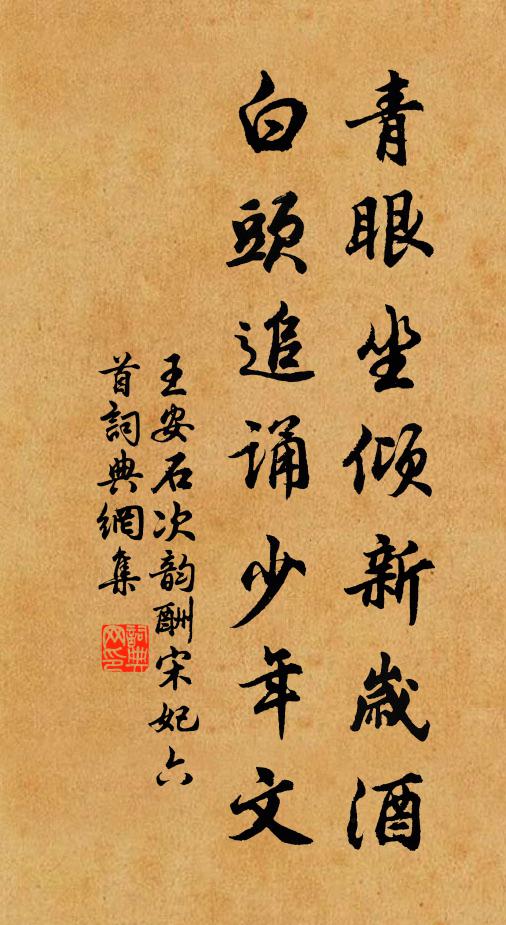 青眼坐傾新歲酒
白頭追誦少年文
王安石次韵酬宋妃六
首詞典網集
詞典網印